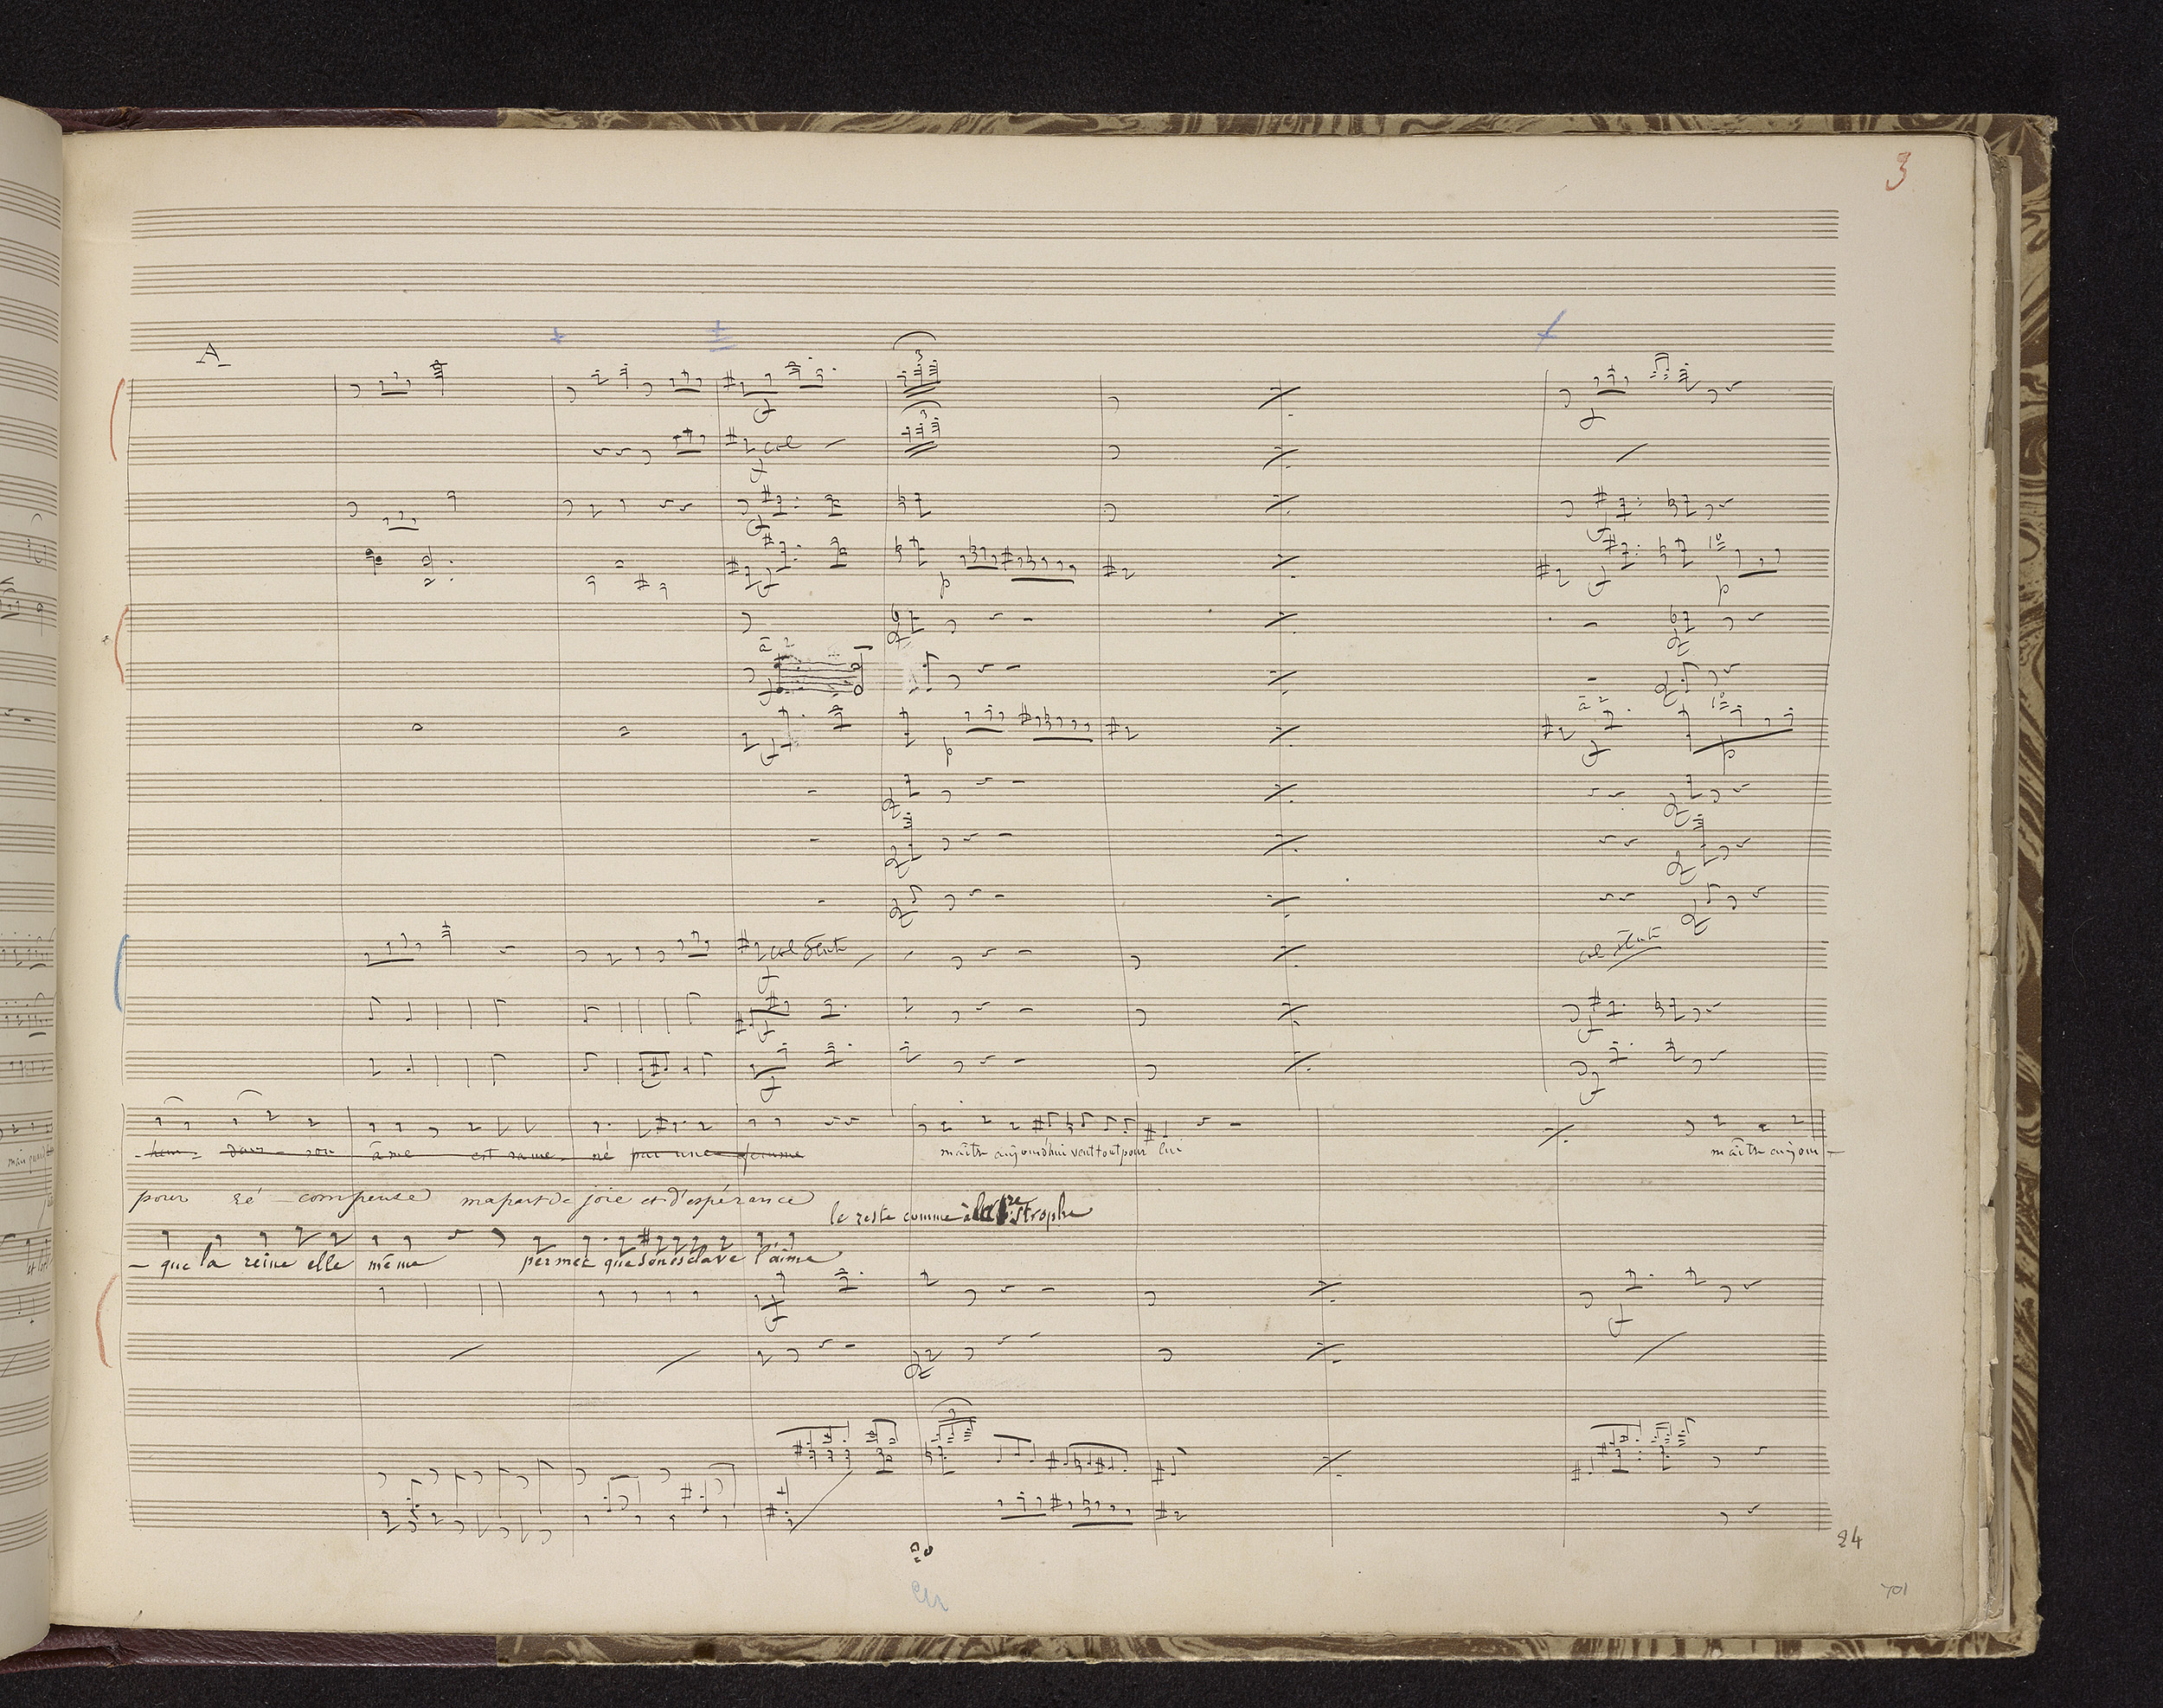 3
A
3
3
f
f
col
f
f
f
f
p
1º
p
à 2
f
f
p
à 2
f
1º
p
col flauti
f
col flauti
f
f
f
f
âme est rame - né par une femme
maître aujourd'hui veut tout pour lui
maître aujour -
pour ré compense ma part de joie et d'espérance
le reste comme à la 1re strophe
- que la reine elle même permet que son esclave l'aime
f
f
3
24
701